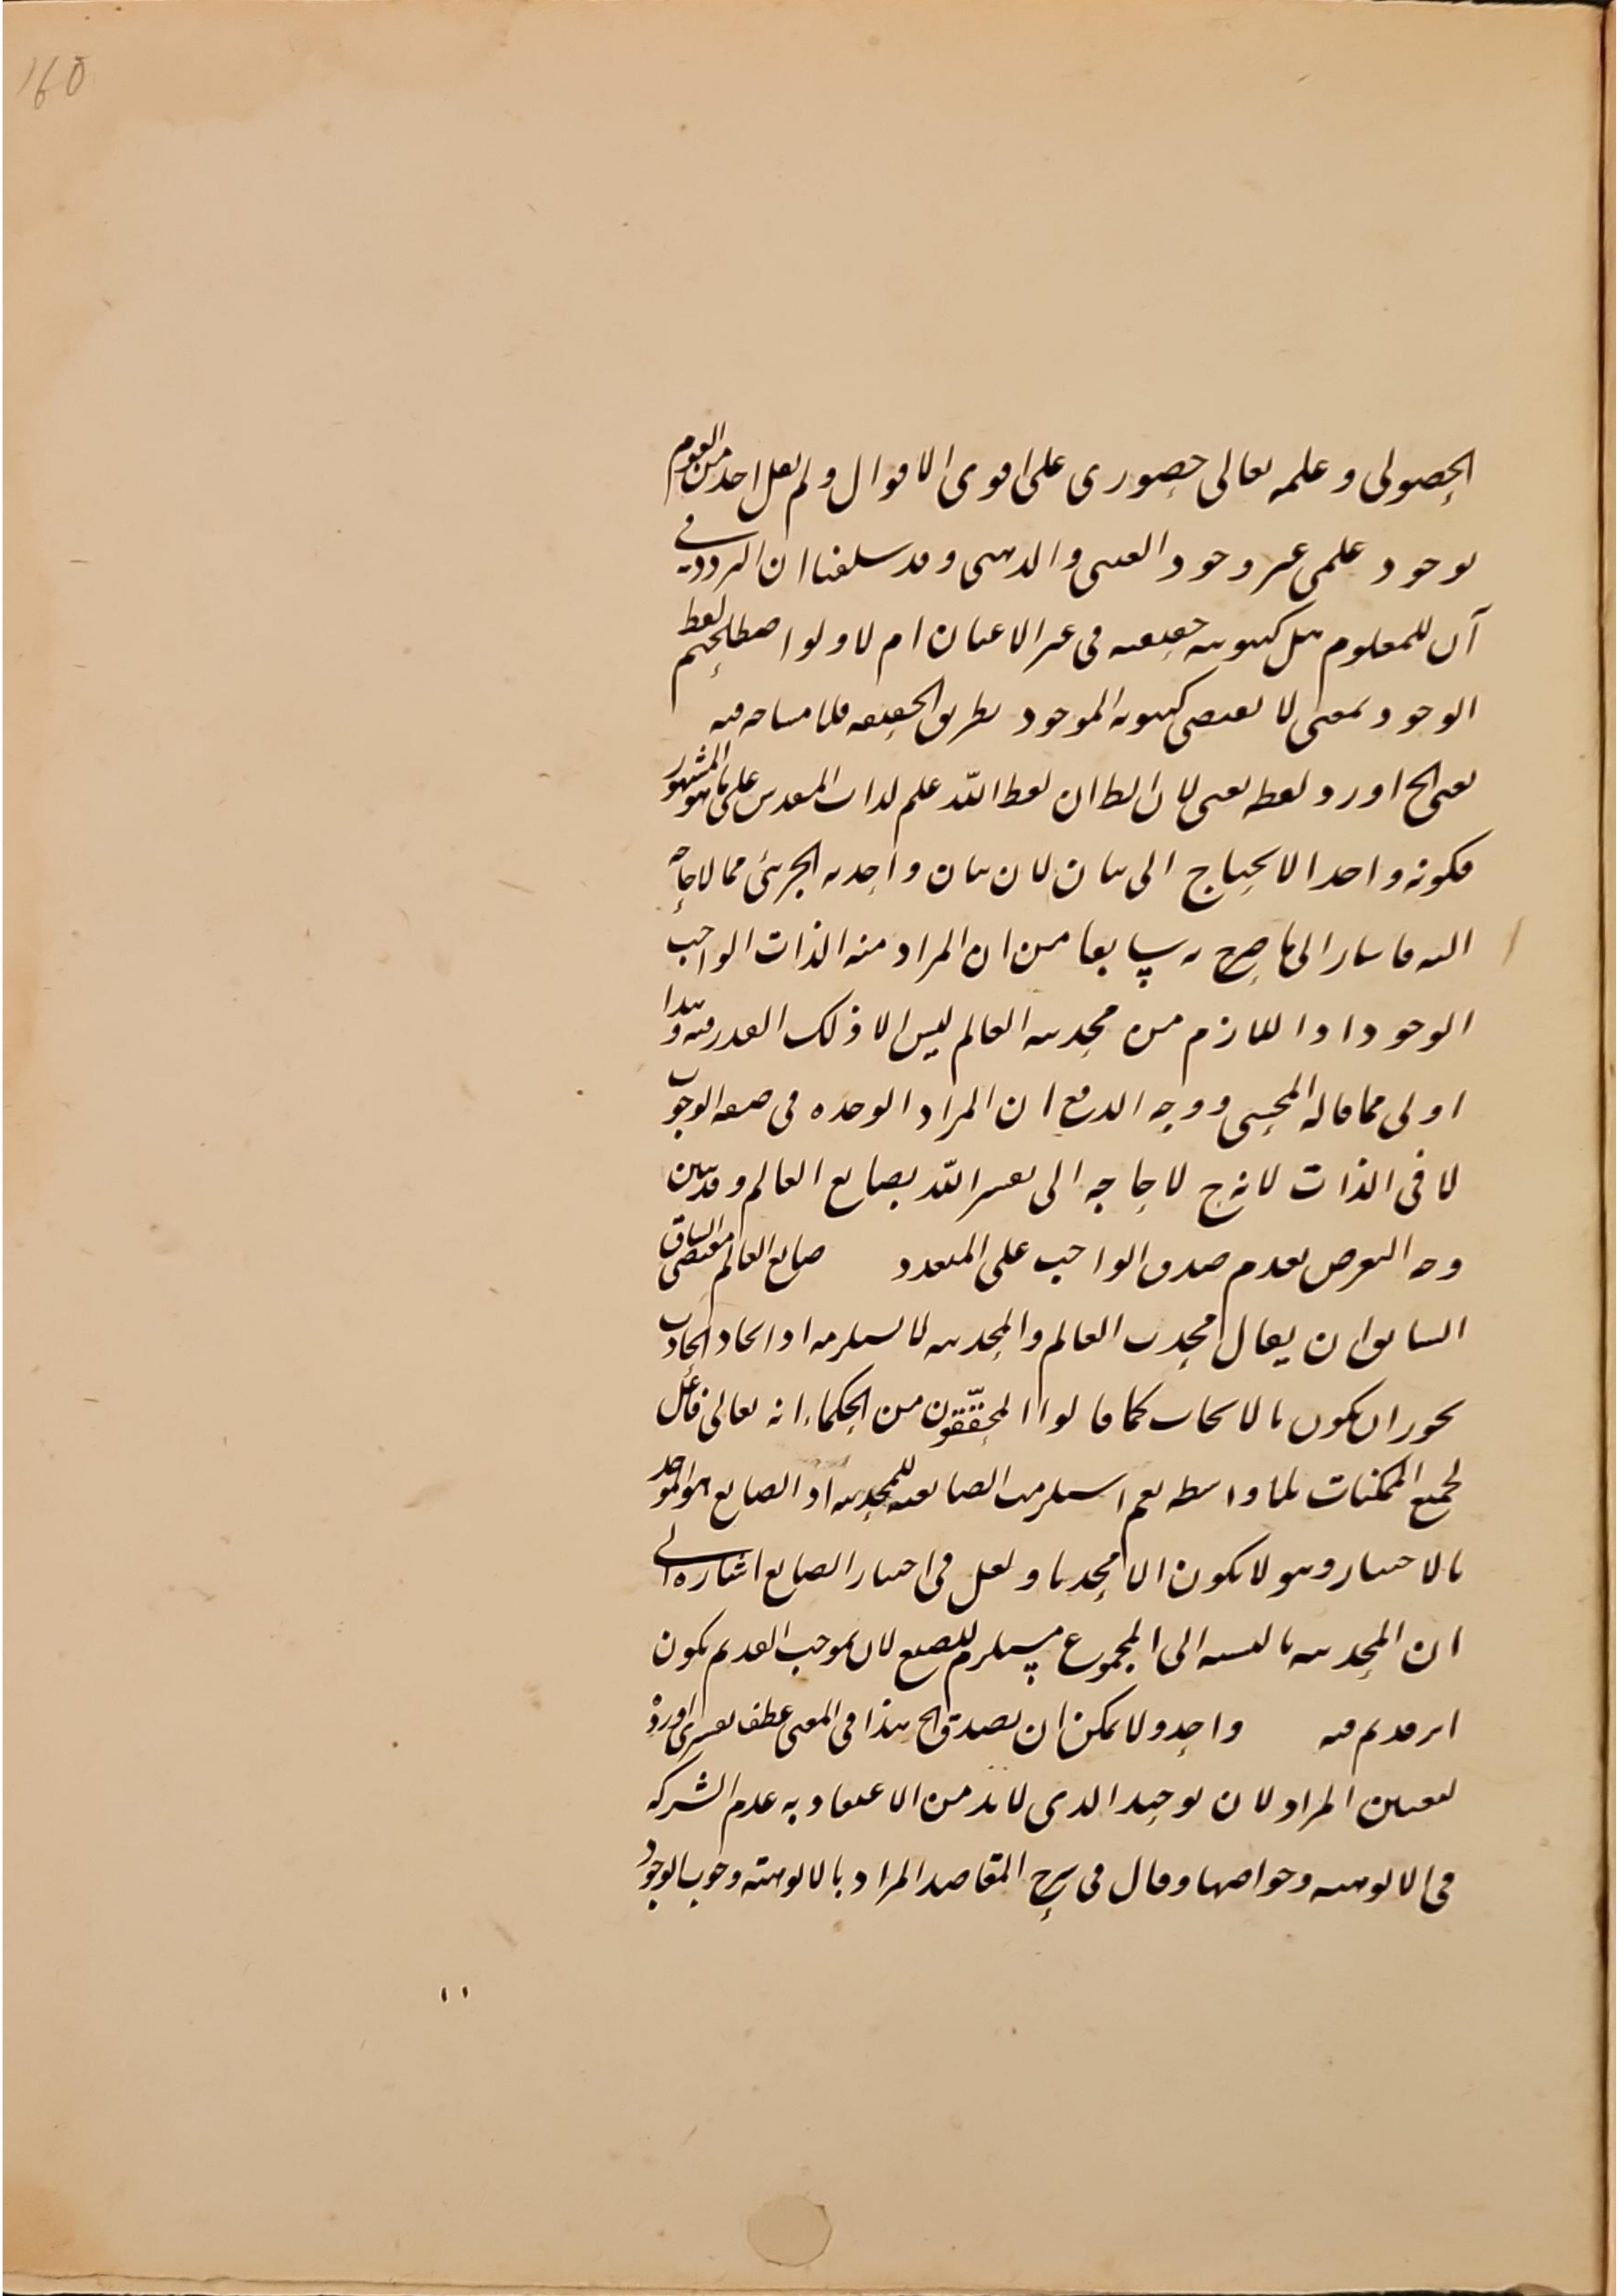 160
الحصولى وعلمه تعالى حضورى على اقوى الاقوال ولم يقل احد من القوم
بوجود علمى غير وجود العينى والذهنى وقد سلفنا ان التردد فى
آن للمعلوم هل كينونية حقيقية فى غير الاعيان ام لا ولو اصطلحتم لفظ
الوجود بمعنى لا يقتضى كينونة الموجود بطريق الحقيقة فلا مشاحة فيه
يعنى الخ اورد لفظه يعنى لان الظ ان لفظ الله علم لذات المقدس على ما هو المشهور
فكونه واحدا لا يحتاج الى بيان لان بيان واحدية الجزئى مما لا حاجة
اليه فاشار الى ما صرح به سابقا من ان المراد منه الذات الواجب
الوجود اذ اللازم من محدثية العالم ليس الا ذلك القدر فيه وهذا
اولى مما قاله المحشى ووجه الدفع ان المراد الوحدة فى صفة الوجوب
لا فى الذات لانه ح لا حاجة الى تفسير الله بصانع العالم وقد بين
وجه التعرض بعدم صدق الواجب على المتعدد صانع العالم مقتضى السياق
السابق ان يقال محدث العالم والمحدثية لا يستلزمه اذ ايجاد الحادث
يجوز ان يكون بالايجاب كما قالوا المحققون من الحكماء انه تعالى فاعل
لجميع الممكنات بلا واسطة نعم استلزمت الصانعية للمحدثية اذ الصانع هو الموجد
بالاختيار وهو لا يكون الا محدثا ولعل فى اختيار الصانع اشارة الى
ان المحدثية بالنسبة الى المجموع مستلزم للصنع لان بموجب القديم يكون
اثر قديم فيه واحد ولا يمكن ان يصدق الخ هذا فى المعنى عطف تفسيرى اورده
لتعيين المراد لان توحيد الذى لا بد من الاعتقاد به عدم الشركة
فى الالوهية وخواصها وقال فى شرح المقاصد المراد بالالوهية وجوب الوجود